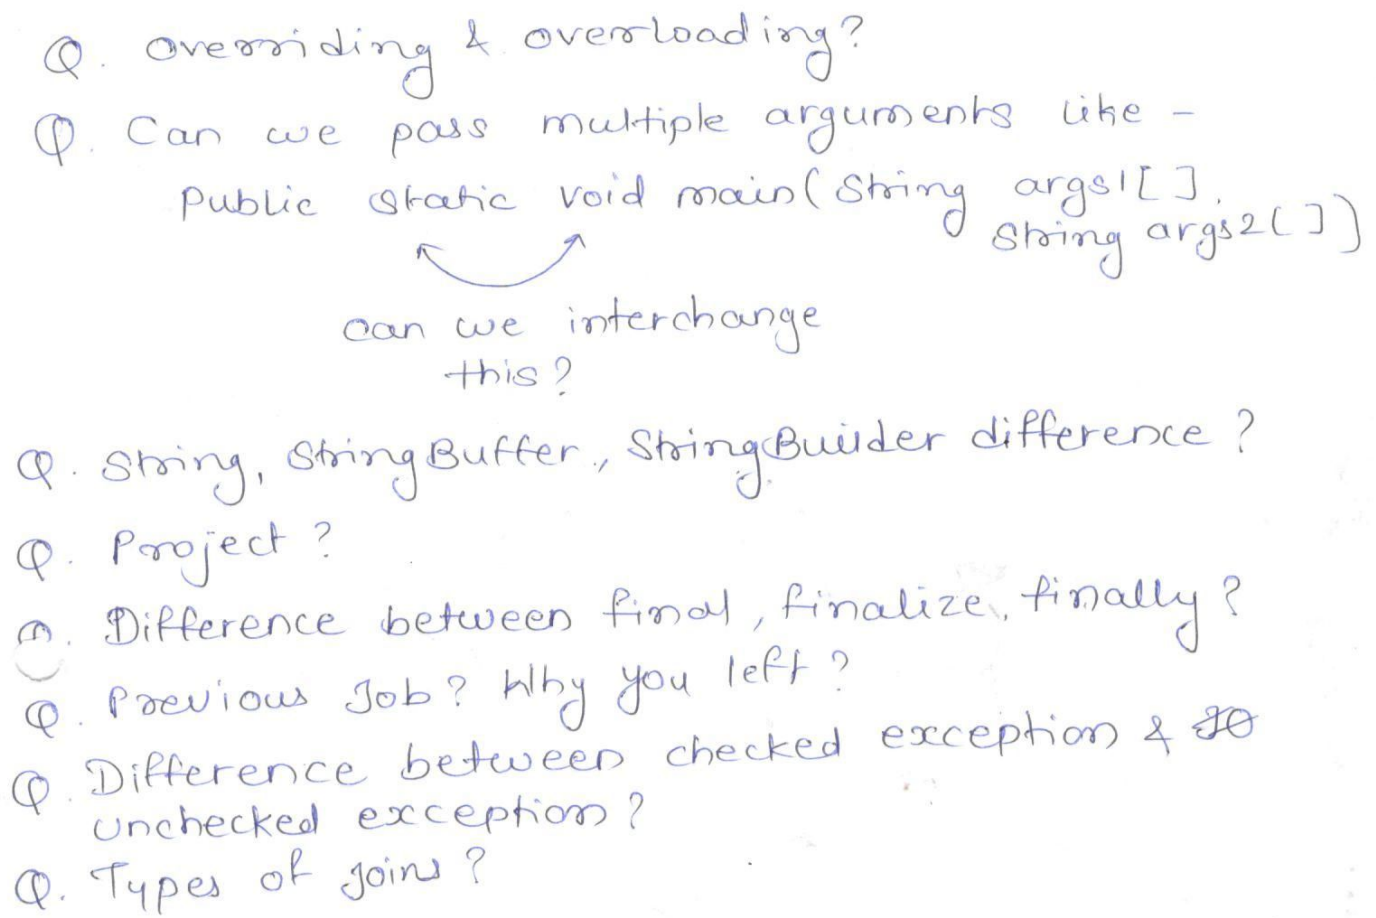 Q. Overriding & overloading?
Q. Can we pass multiple arguments like -
Public static void main(String args1[],
String args2[])
can we interchange
this?
Q. String, StringBuffer, StringBuilder difference?
Q. Project?
Q. Difference between final, finalize, finally?
Q. Previous Job? Why you left?
Q. Difference between checked exception &
unchecked exception?
Q. Types of Joins?